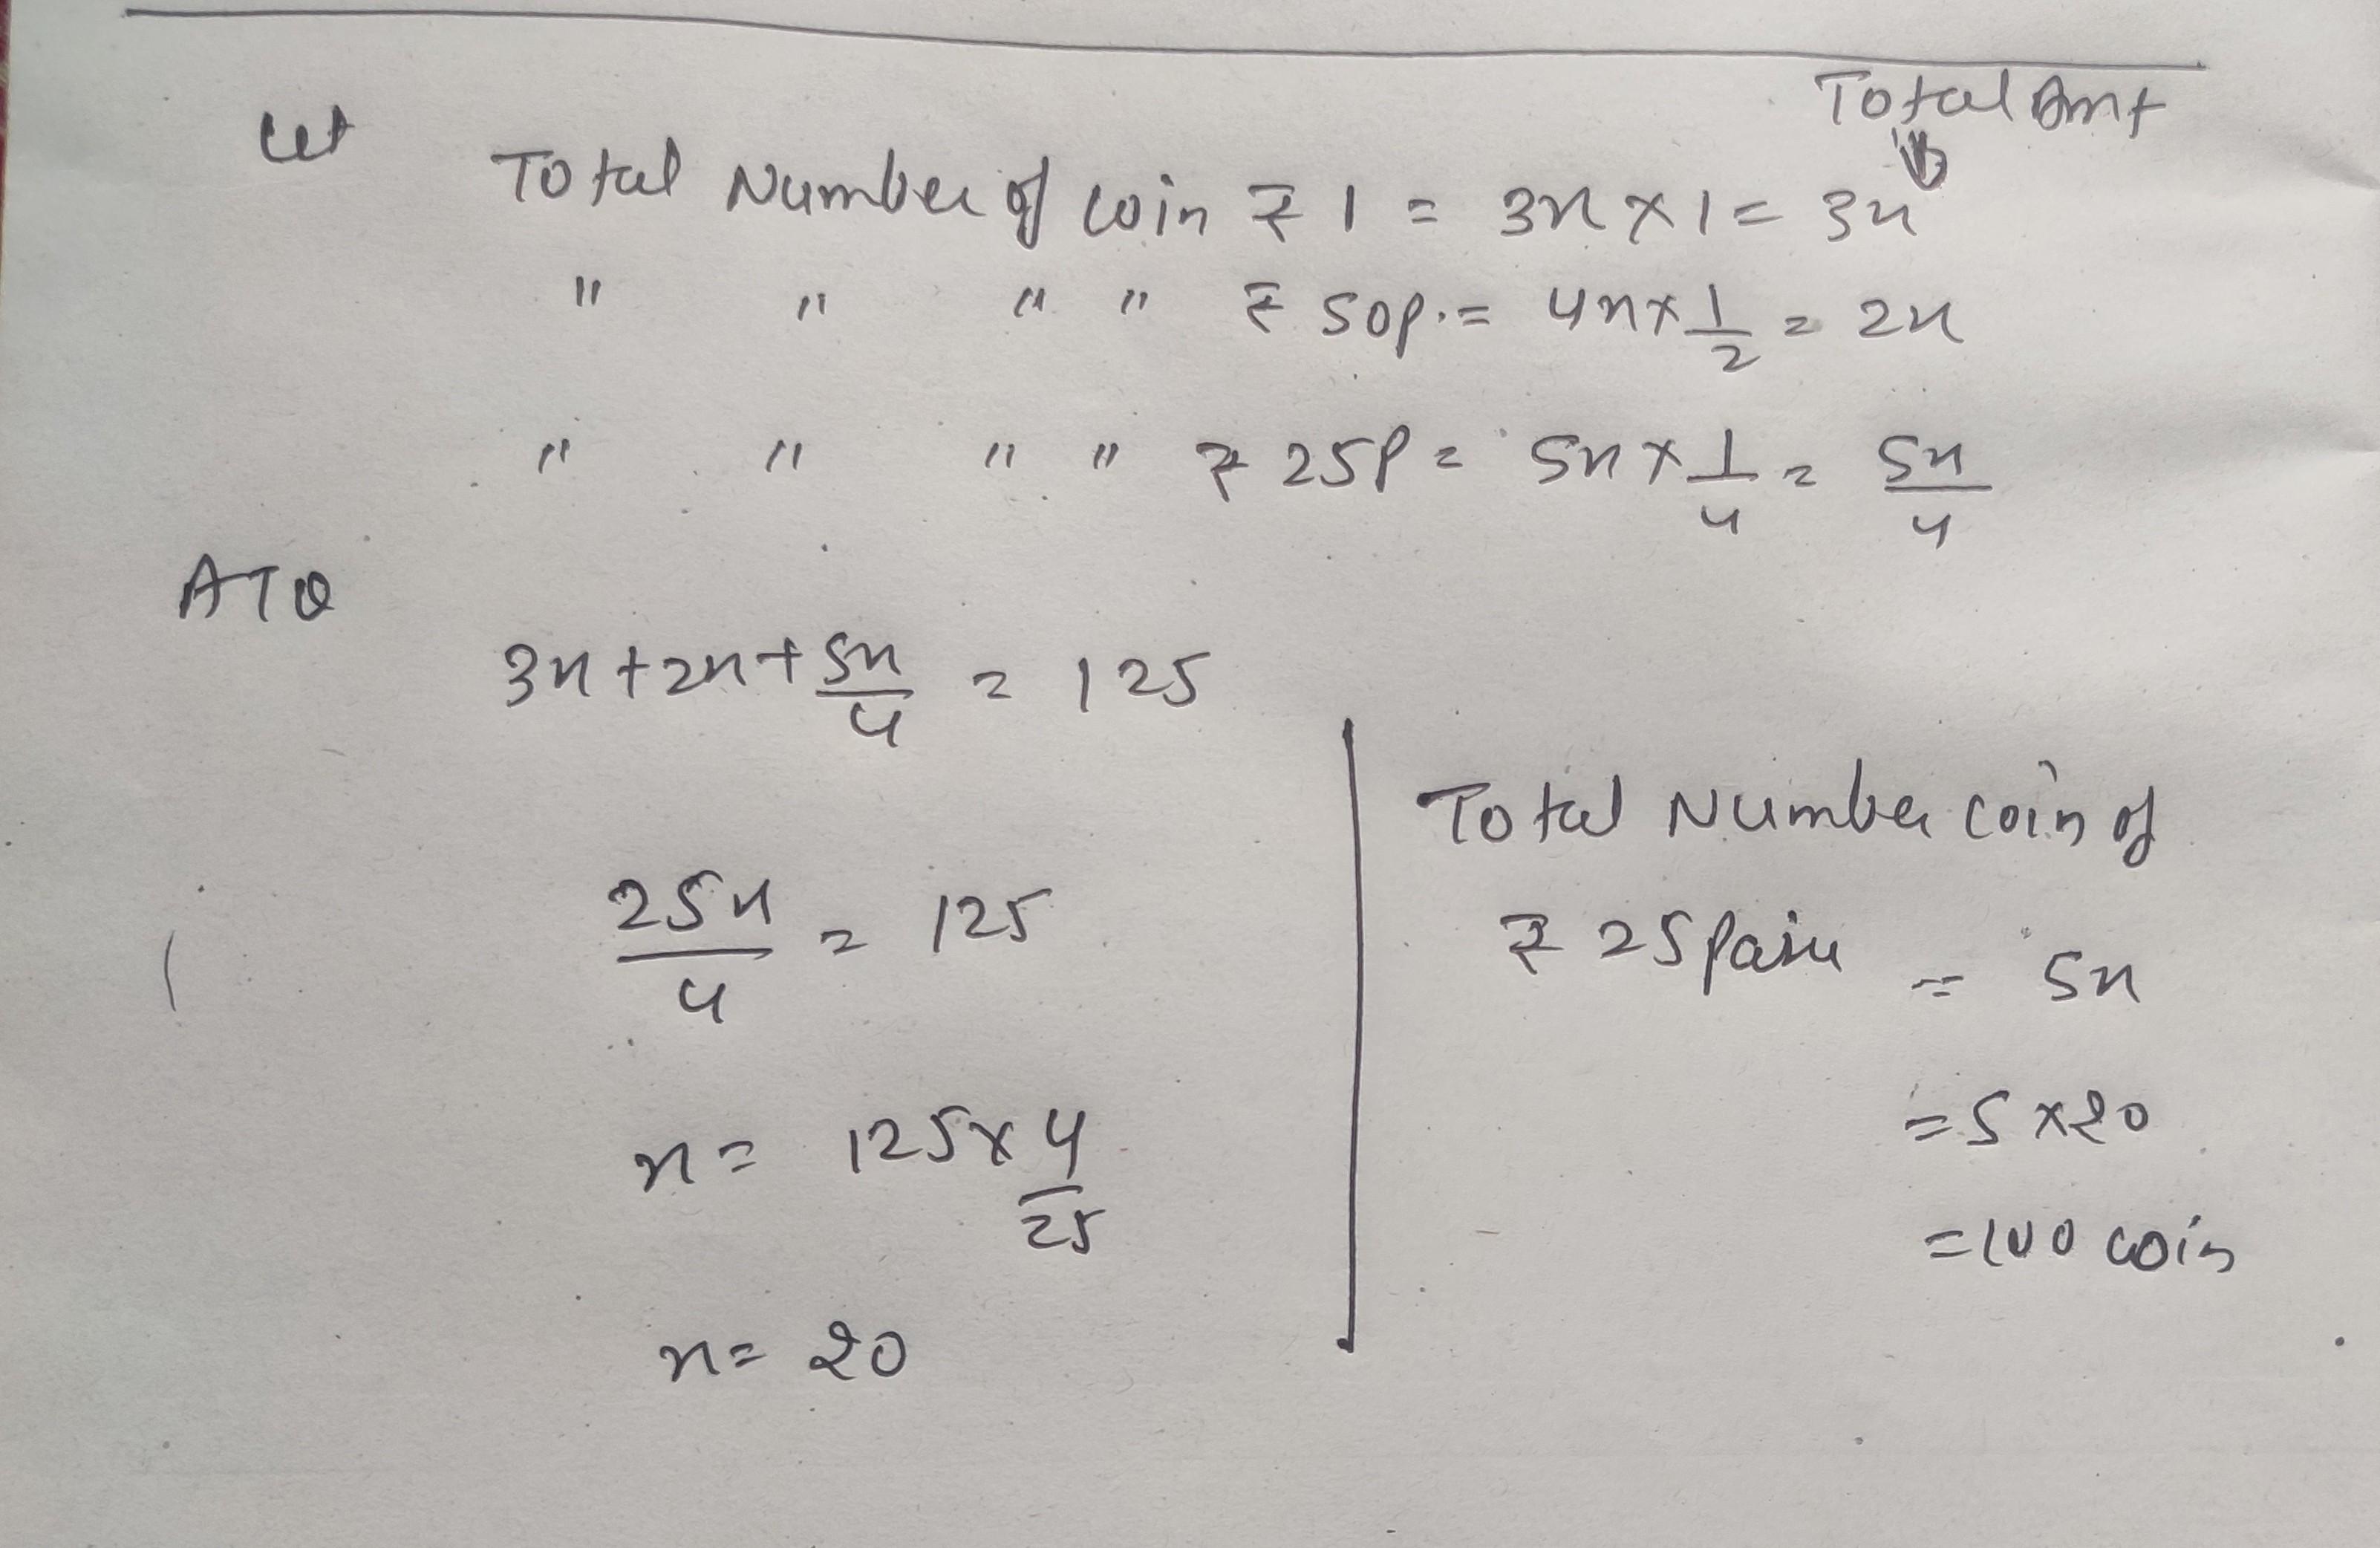 Total Amt
Let Total Number of coin ₹ 1 = 3x × 1 = 3x
" " " " ₹ 50p. = 4x × 1/2 = 2x
" " " " ₹ 25P = 5x × 1/4 = 5x/4
ATQ
3x + 2x + 5x/4 = 125
25x/4 = 125
x = 125 × 4/25
x = 20
Total Number coin of
₹ 25 Paise = 5x
= 5 × 20
= 100 coin